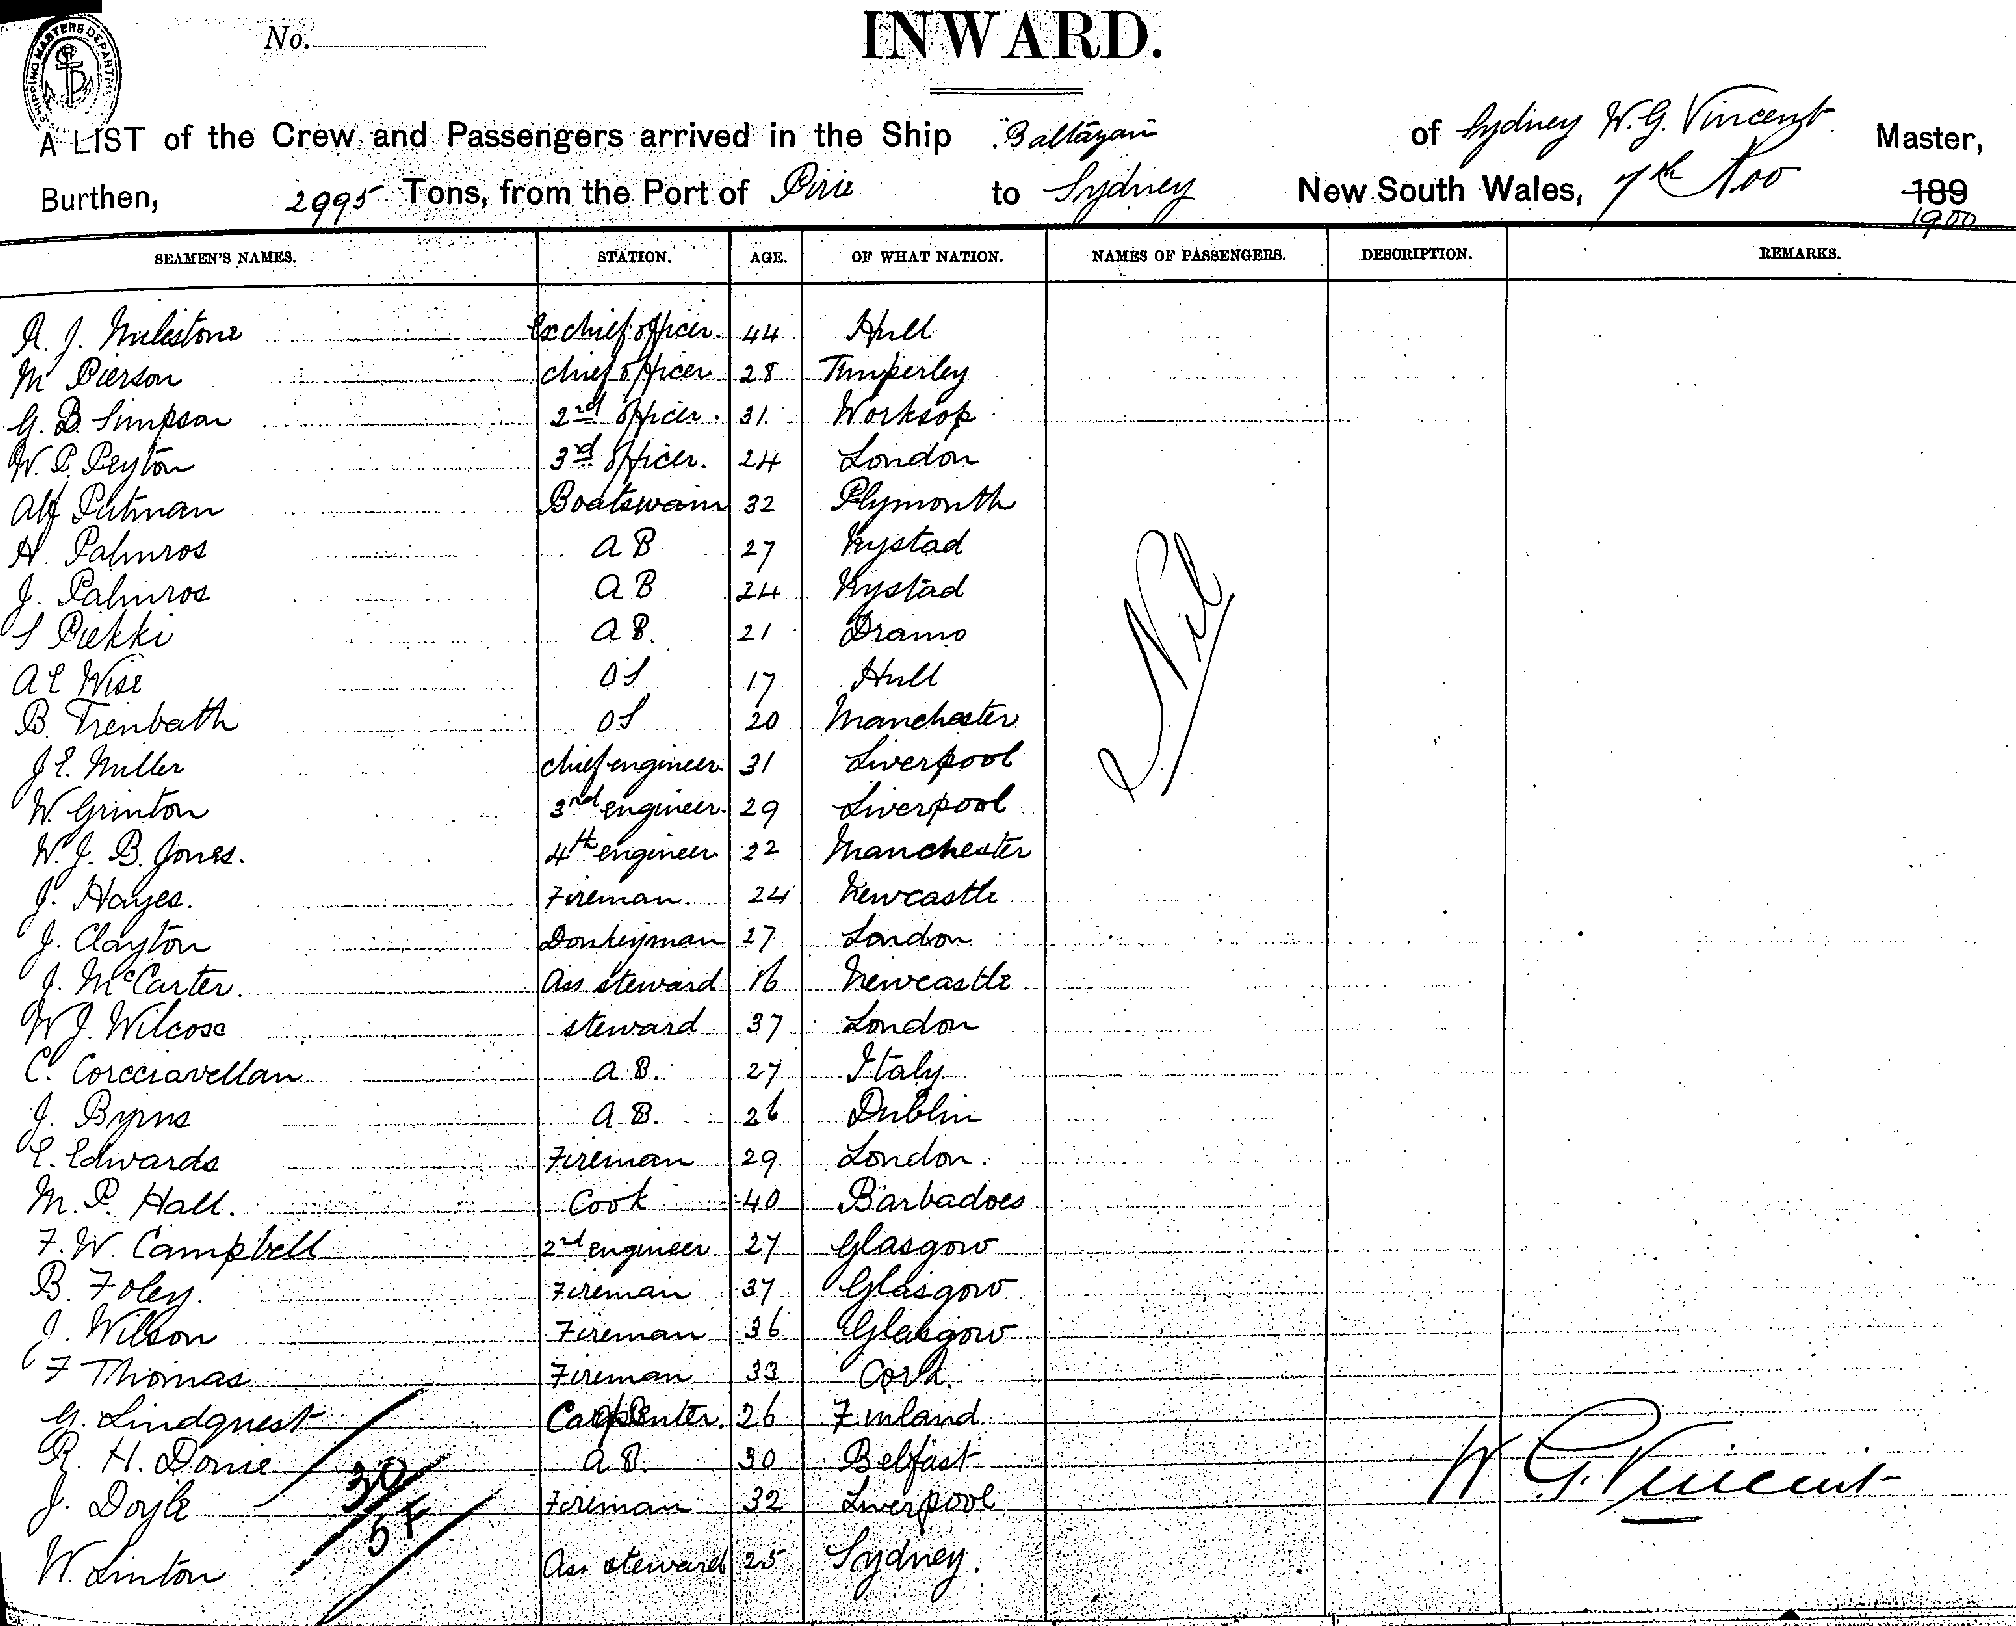 No.
INWARD.
SHIPPING MASTERS DEPARTMENT
A LIST of the Crew and Passengers arrived in the Ship Baltazan of Sydney W. G. Vincent Master,
Burthen, 2995 Tons, from the Port of Pirie to Sydney New South Wales, 7th Nov 189 1900
SEAMEN'S NAMES. STATION. AGE. OF WHAT NATION. NAMES OF PASSENGERS. DESCRIPTION. REMARKS.
R. J. Milestone Ex chief officer 44 Hull
M Pierson chief officer 28 Timperley
G. B. Simpson 2nd officer. 31 Worksop
W. P. Peyton 3rd officer. 24 London
Alf Putman Boatswain 32 Plymouth
H. Palmros A B 27 Nystad
J. Palmros A B 24 Nystad
S Piekki A B. 21 Dramo
A E Wise O S 17 Hull
B. Trenbath O S 20 Manchester
Nil
J E. Miller chief engineer 31 Liverpool
W. Grinton 3rd engineer. 29 Liverpool
W. J. B. Jones. 4th engineer 22 Manchester
J. Hayes. Fireman. 24 Newcastle
J. Clayton Donkeyman 27 London
J. McCarter. Ass steward 16 Newcastle
W J. Wilcox steward 37 London
C. Corcciavellan A. B. 27 Italy
J. Byrns A. B. 26 Dublin
E. Edwards Fireman 29 London.
M. P. Hall. Cook 40 Barbadoes
F. W. Campbell 2nd engineer 27 Glasgow
B. Foley. Fireman 37 Glasgow
J. Wilson Fireman 36 Glasgow
F Thomas Fireman 33 Cork.
G. Lindquest Carpenter. 26 Finland
R. H. Dorrie A B. 30 Belfast
J. Doyle Fireman 32 Liverpool
30
5F
W G. Vincent
W. Linton Ass steward 25 Sydney.